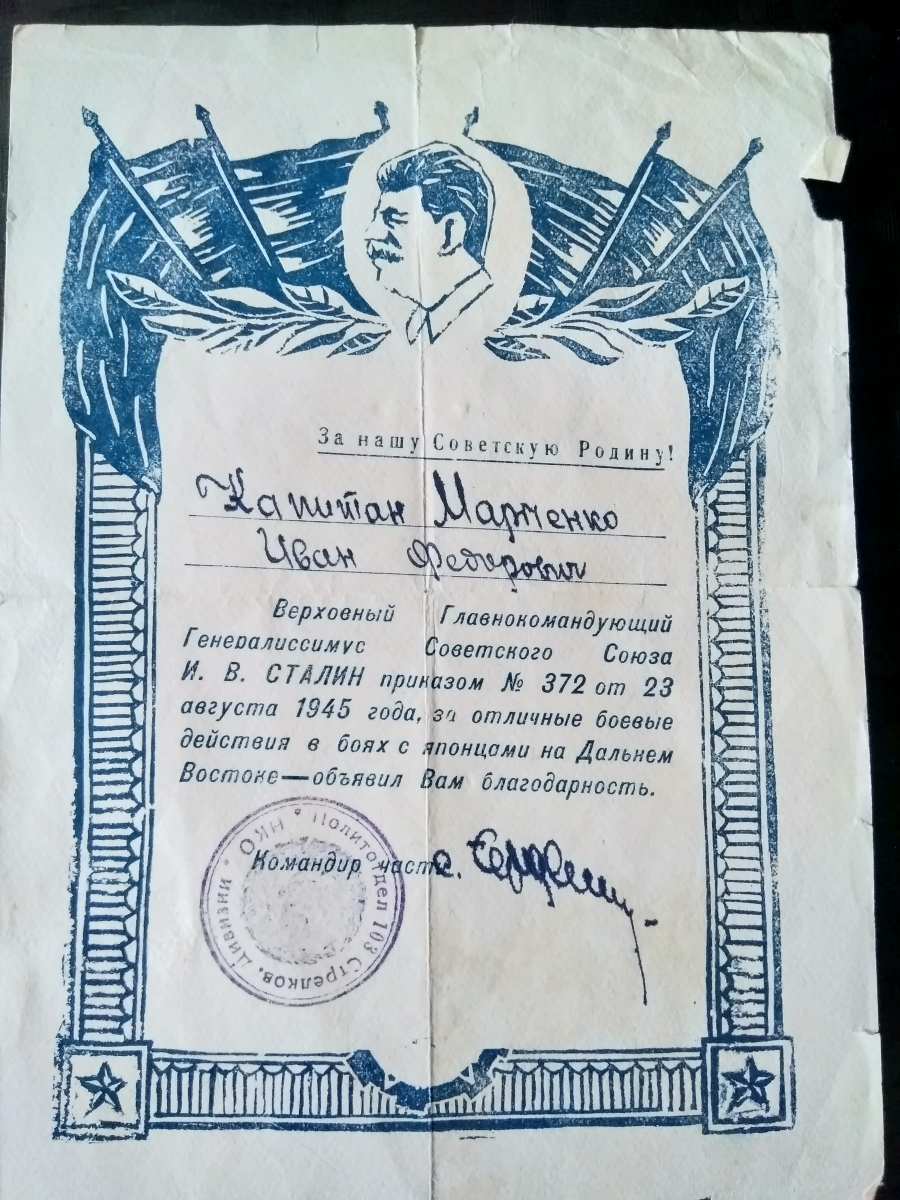 За нашу Советскую Родину!
Капитан Марченко
Иван Федорович
Верховный Главнокомандующий
Генералиссимус Советского Союза
И. В. СТАЛИН приказом № 372 от 23
августа 1945 года, за отличные боевые
действия в боях с японцами на Дальнем
Востоке—объявил Вам благодарность.
Командир части
НКО * Политотдел 103 Стрелков. Дивизии *